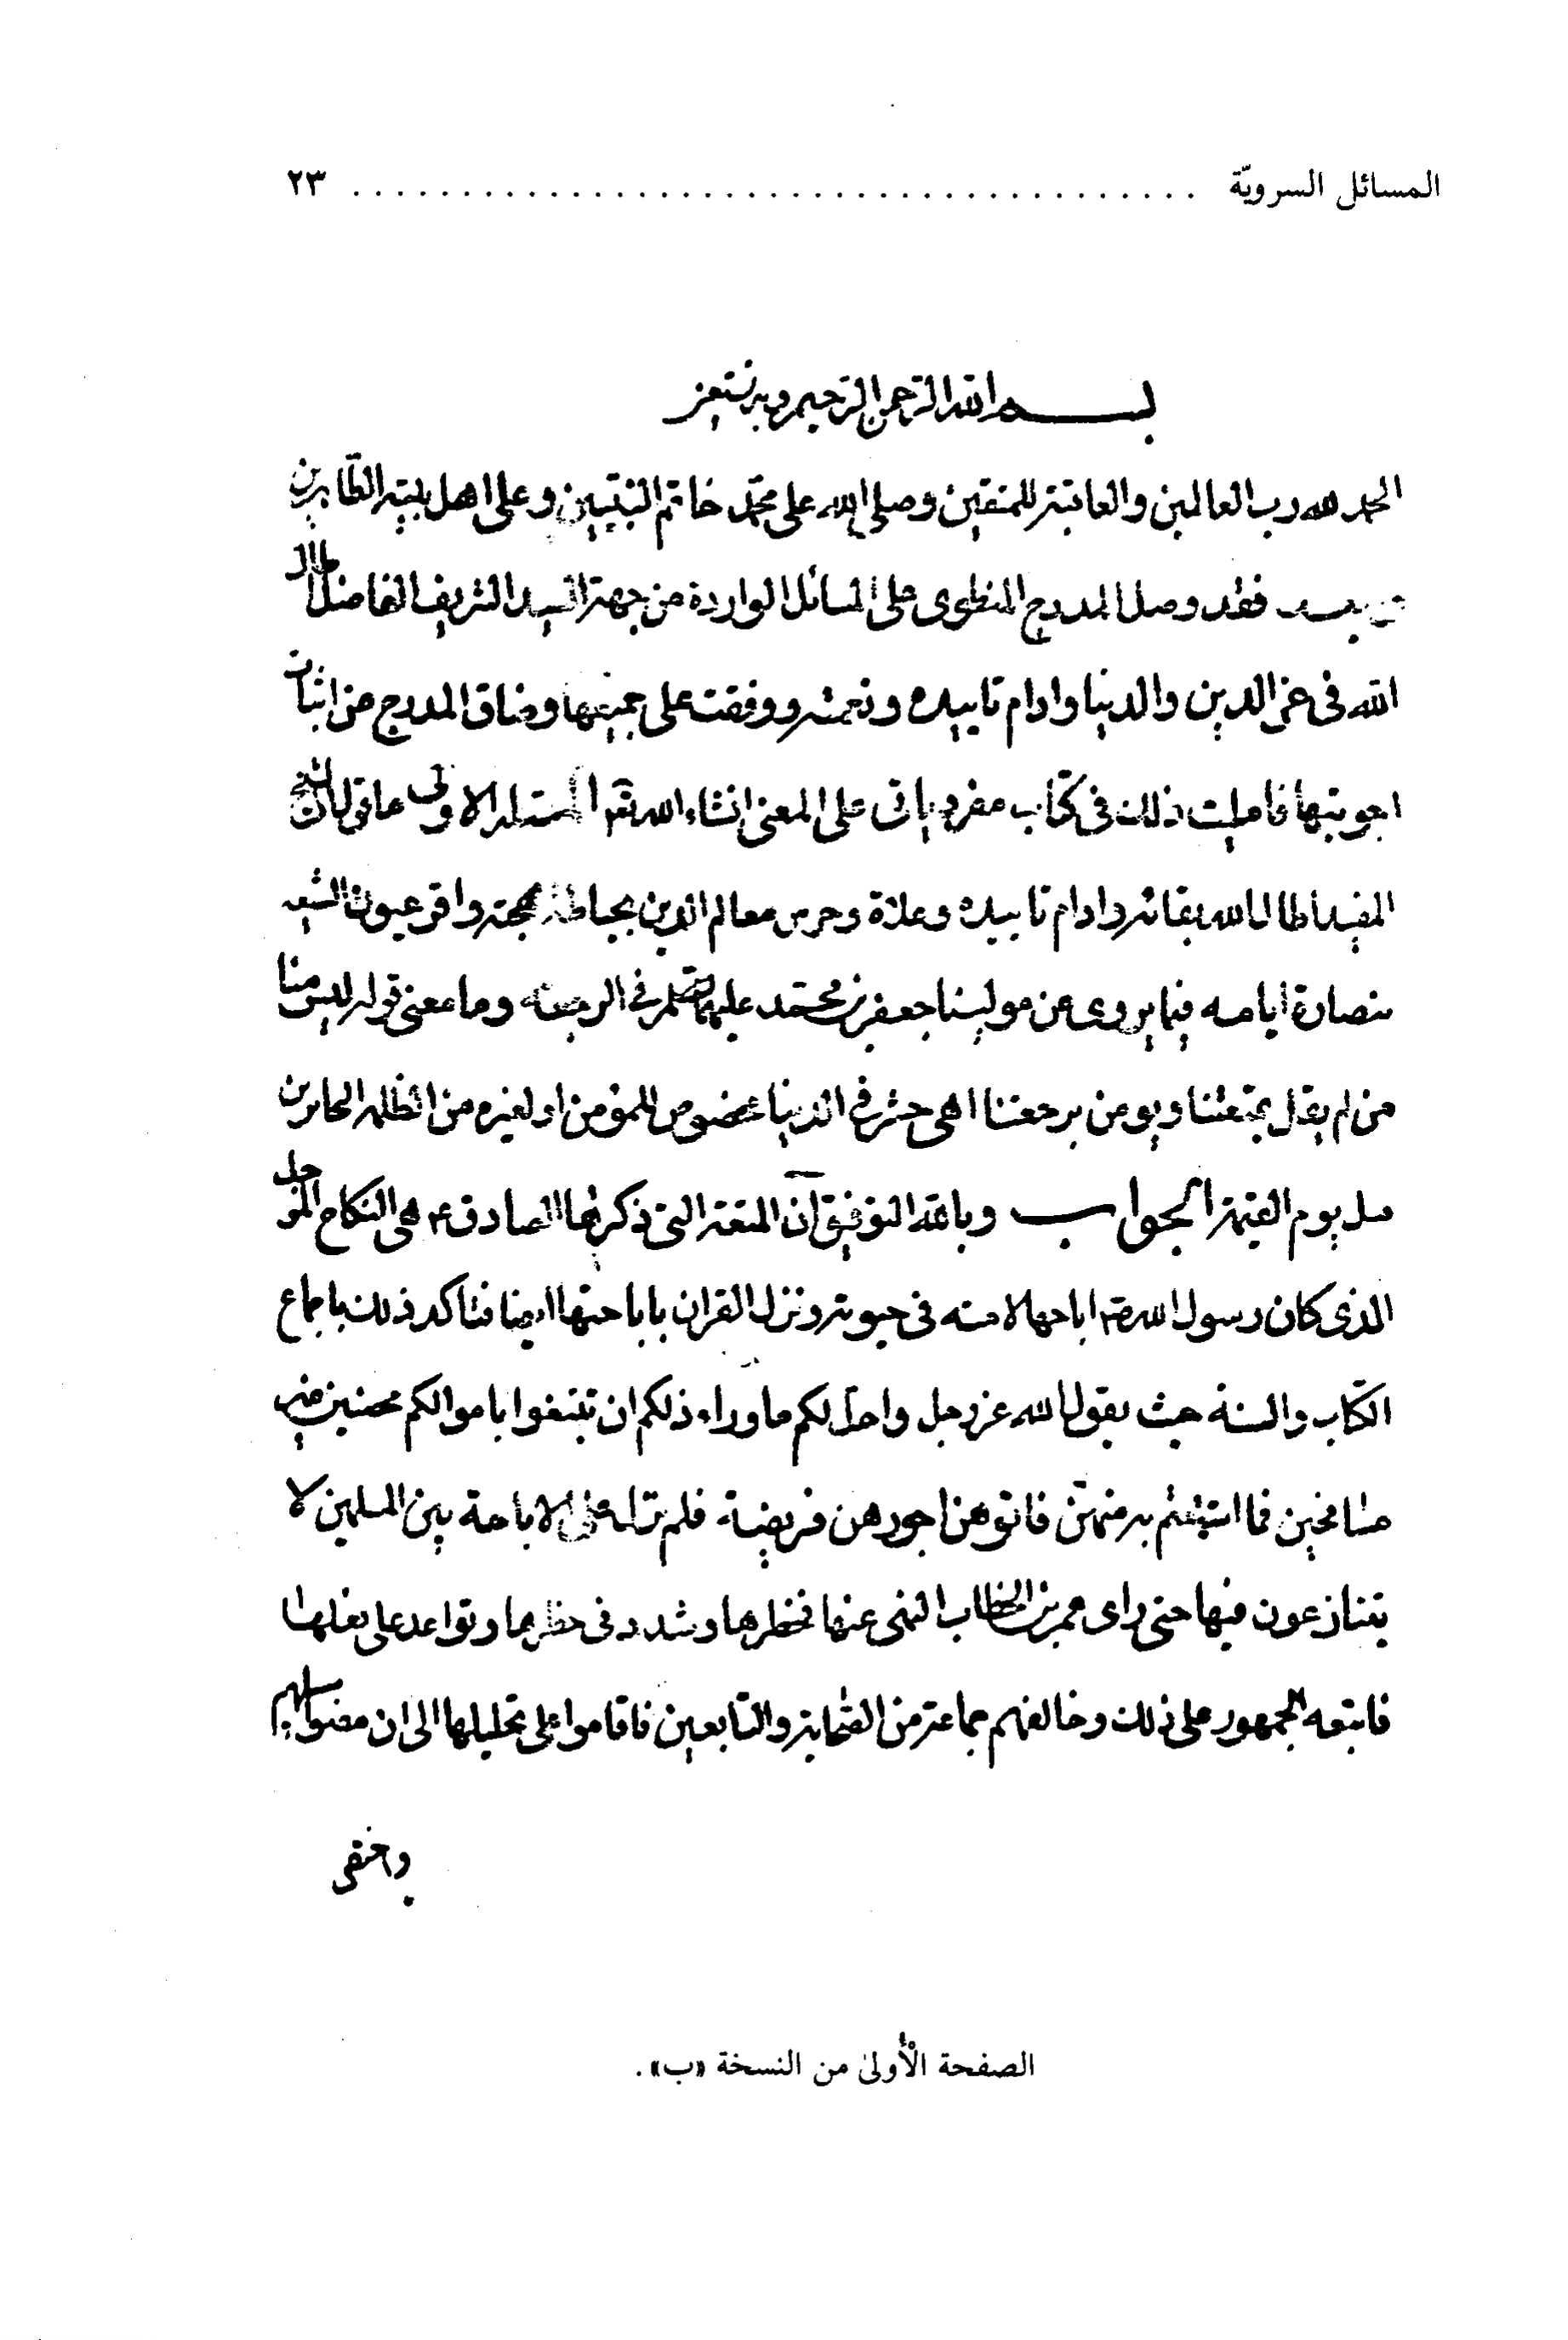 المسائل السرويّة ........................................ ٢٣
بسم الله الرحمن الرحيم وبه نستعين
الحمد لله رب العالمين والعاقبة للمتقين وصلى الله على محمد خاتم النبيين وعلى اهل بيته الطاهرين
وبعد فقد وصل المدرج المنطوى على المسائل الواردة من جهة السيد الشريف الفاضل اطال
الله فى عز الدين والدنيا وادام تاييده ونعمته ووقفت على جميعها وضاق المدرج من اثبات
اجوبتها فامليت ذلك فى كتاب مفرد ياتى على المعنى انشاء الله تعالى المسئلة الاولى ما قول الشيخ
المفيد اطال الله بقائه وادام تاييده وعلاه وحرس معالم الدين بحياطة مهجته واقر عيون الشيعة
بنضارة ايامه فيما يروى عن مولينا جعفر بن محمد عليهما السلم فى الرجعة وما معنى قوله ليس منا
من لم يقل بمتعتنا ويومن برجعتنا اهى حشر فى الدنيا مخصوص للمؤمن او لغيره من الظلمة الجائرين
قبل يوم القيمة الجواب وبالله التوفيق ان المتعة التى ذكرها الصادق ع هى النكاح المؤجل
الذى كان رسول الله ص اباحها لامته فى حيوته ونزل القران باباحتها ايضا فتاكد ذلك باجماع
الكتاب والسنة حيث يقول الله عز وجل واحل لكم ما وراء ذلكم ان تبتغوا باموالكم محصنين غير
مسافحين فما استمتعتم به منهن فاتوهن اجورهن فريضة فلم تزل على الاباحة بين المسلمين لا
يتنازعون فيها حتى راى عمر بن الخطاب النهى عنها فحظرها وشدد فى حظرها وتواعد على فعلها
فاتبعه الجمهور على ذلك وخالفهم جماعة من الصحابة والتابعين فاقاموا على تحليلها الى ان مضوا لسبيلهم
واختص
الصفحة الأُولىٰ من النسخة «ب».